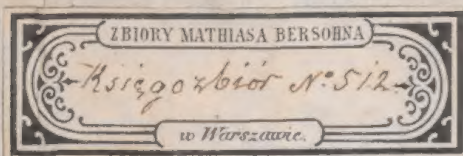 ZBIORY MATHIASA BERSOHNA
Księgozbiór No 512
w Warszawie.